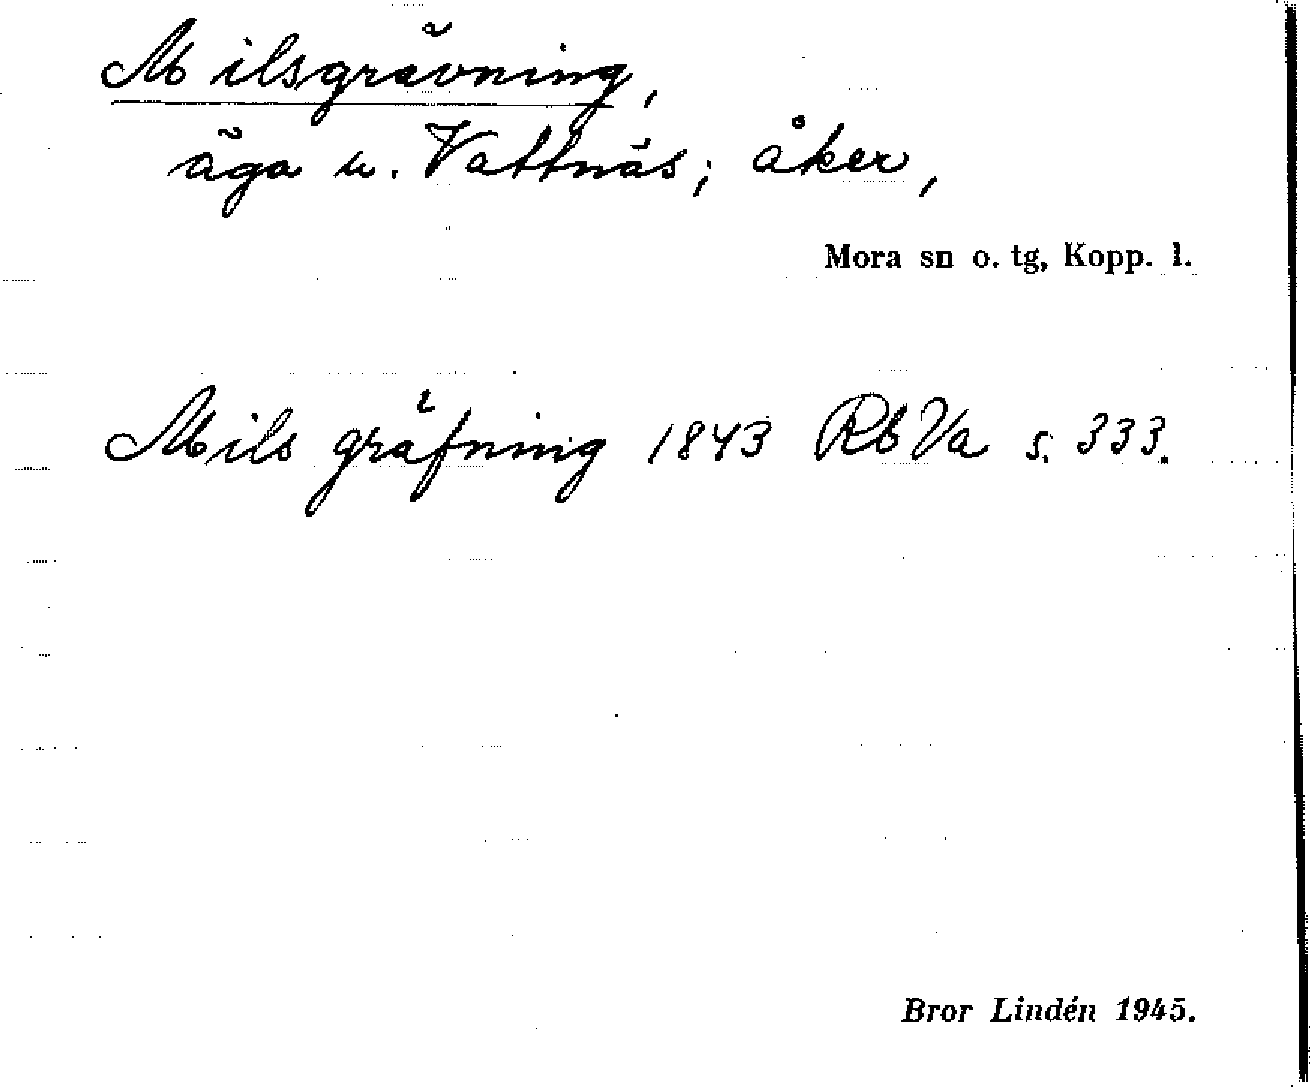 Milsgrävning,
äga u. Vattnäs; åker,
Mora sn o. tg, Kopp. l.
Mils gräfning 1843 Rb Va s. 333.
Bror Lindén 1945.